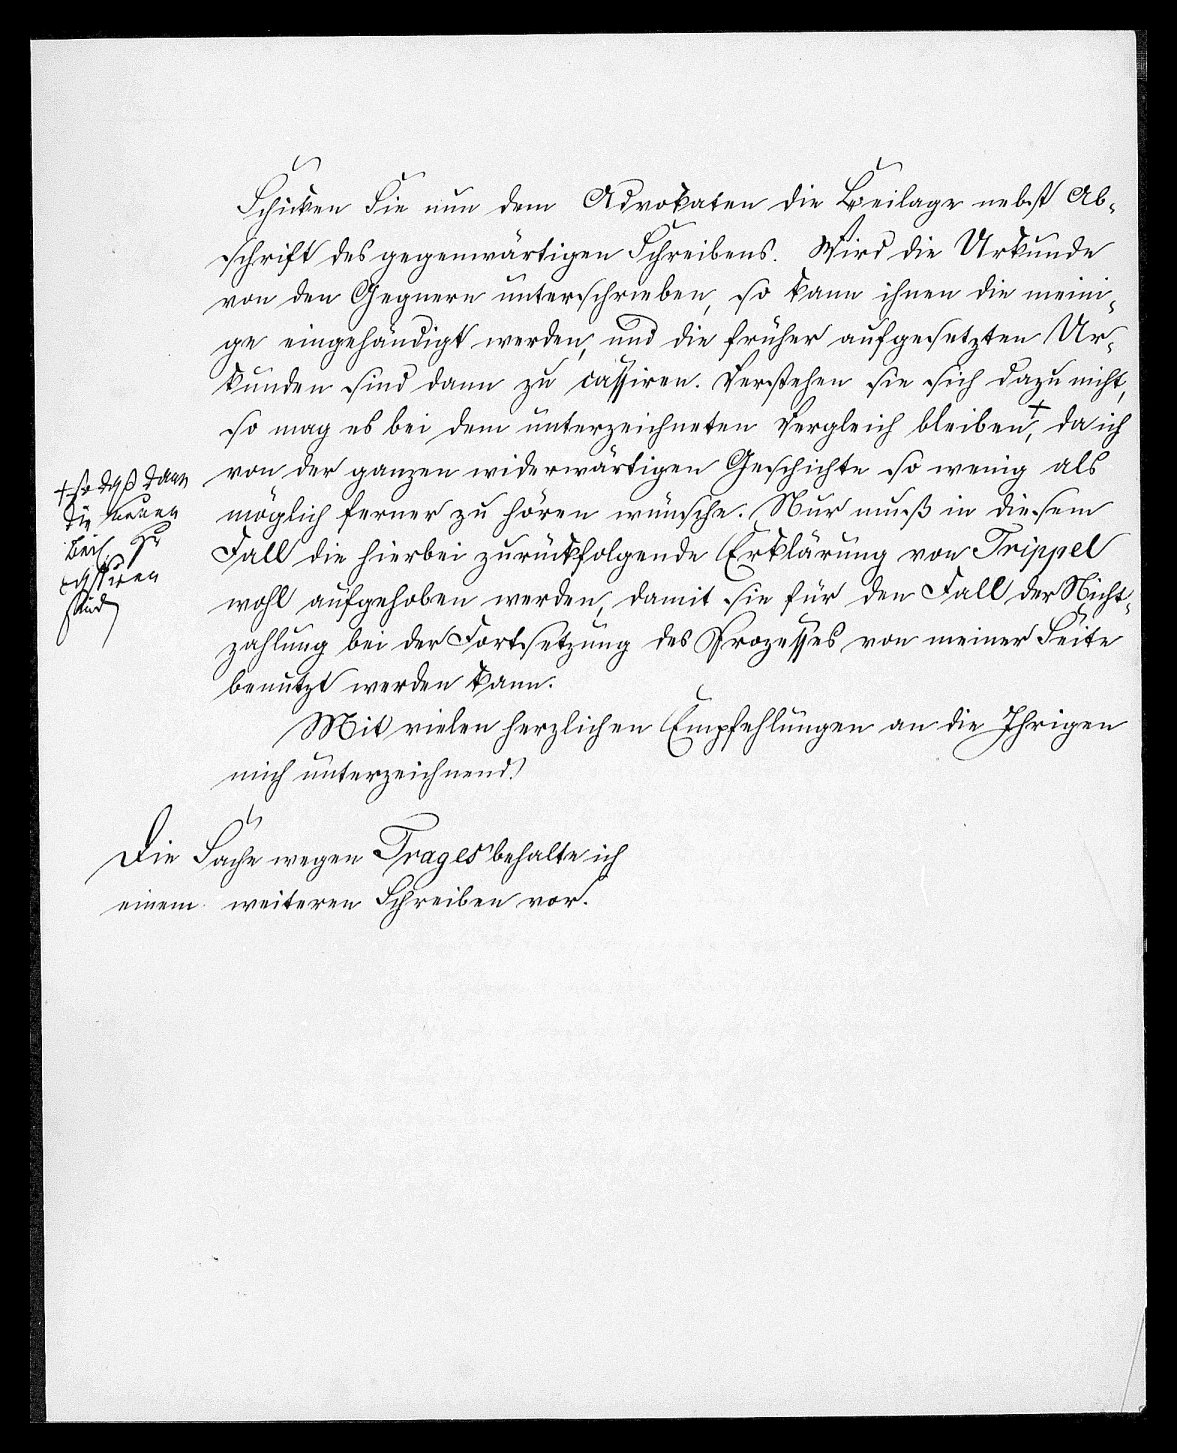 Schicken Sie nun dem Advokaten die Beilage nebst Ab-
schrift des gegenwärtigen Schreibens. Wird die Urkunde
von den Gegnern unterschrieben, so kann ihnen die meini-
ge eingehändigt werden, und die früher aufgesetzten Ur-
kunden sind dann zu cassiren. Verstehen sie sich dazu nicht,
so mag es bei dem unterzeichneten Vergleich bleiben+, da ich
von der ganzen widerwärtigen Geschichte so wenig als
möglich ferner zu hören wünsche. Nur muß in diesem
Fall die hierbei zurückfolgende Erklärung von Trippel
wohl aufgehoben werden, damit sie für den Fall der Nicht-
zahlung bei der Fortsetzung des Prozesses von meiner Seite
benutzt werden kann.
Mit vielen herzlichen Empfehlungen an die Ihrigen
mich unterzeichnend.
+ so daß dann
die neuen
Beil. zu
cassiren
sind
Die Sache wegen Trages behalte ich
einem weiteren Schreiben vor.